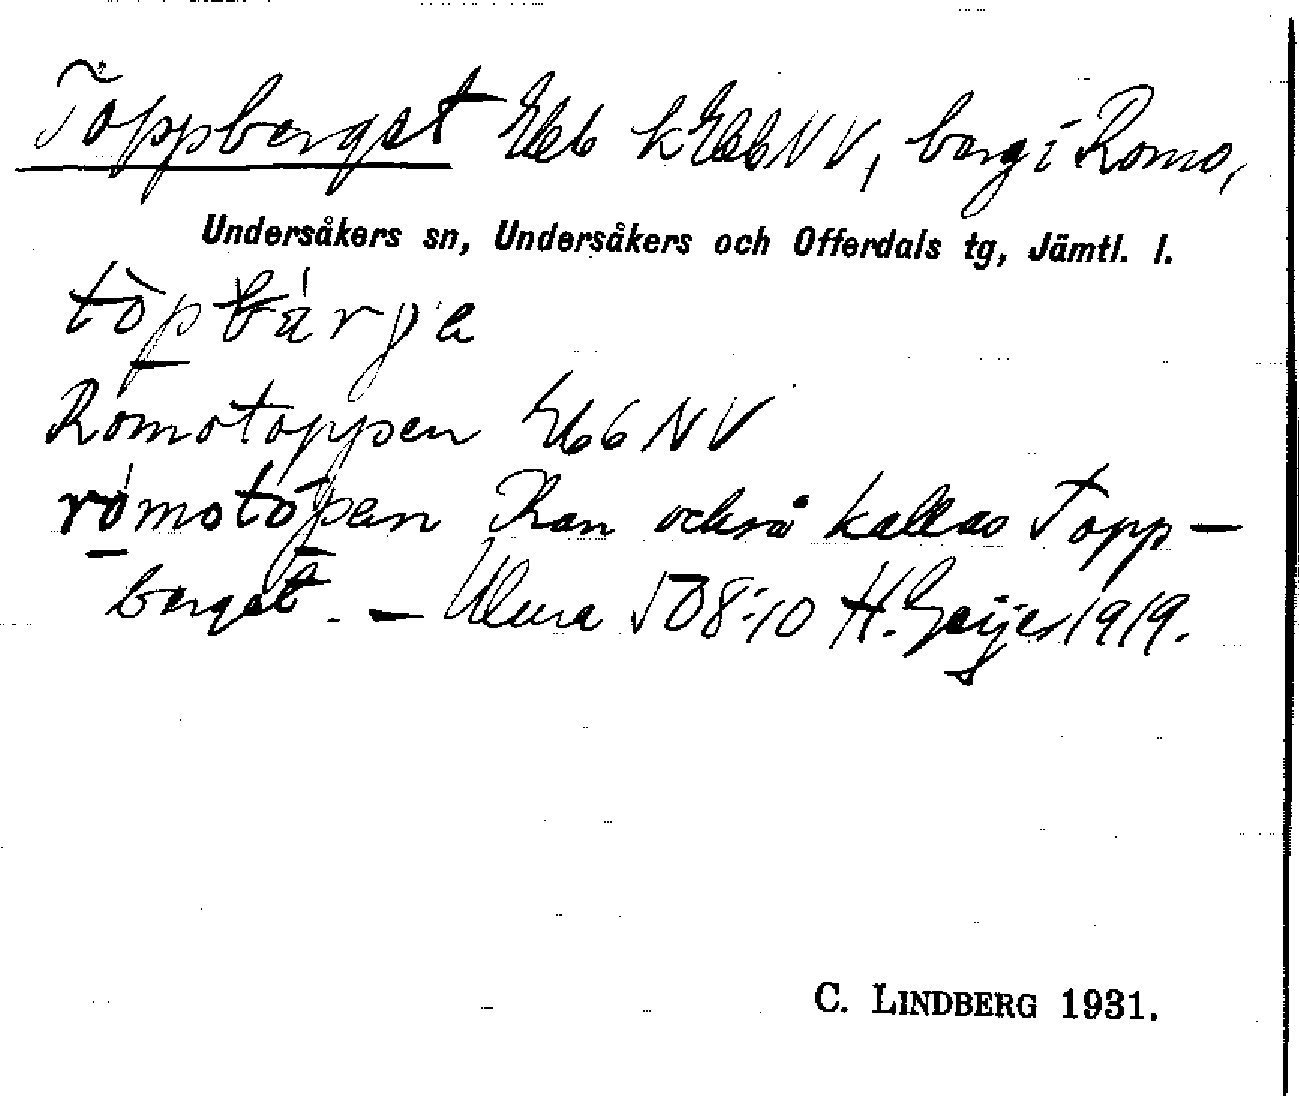 Toppberget Eb6 k Eb6NV, berg i Romo,
Undersåkers sn, Undersåkers och Offerdals tg, Jämtl. l.
tòpbä́rga
Romotoppen Eb6NV
rómotòpen Kan också kallas Topp-
berget. – Ulma 508:10 H. Geijer 1919.
C. LINDBERG 1931.